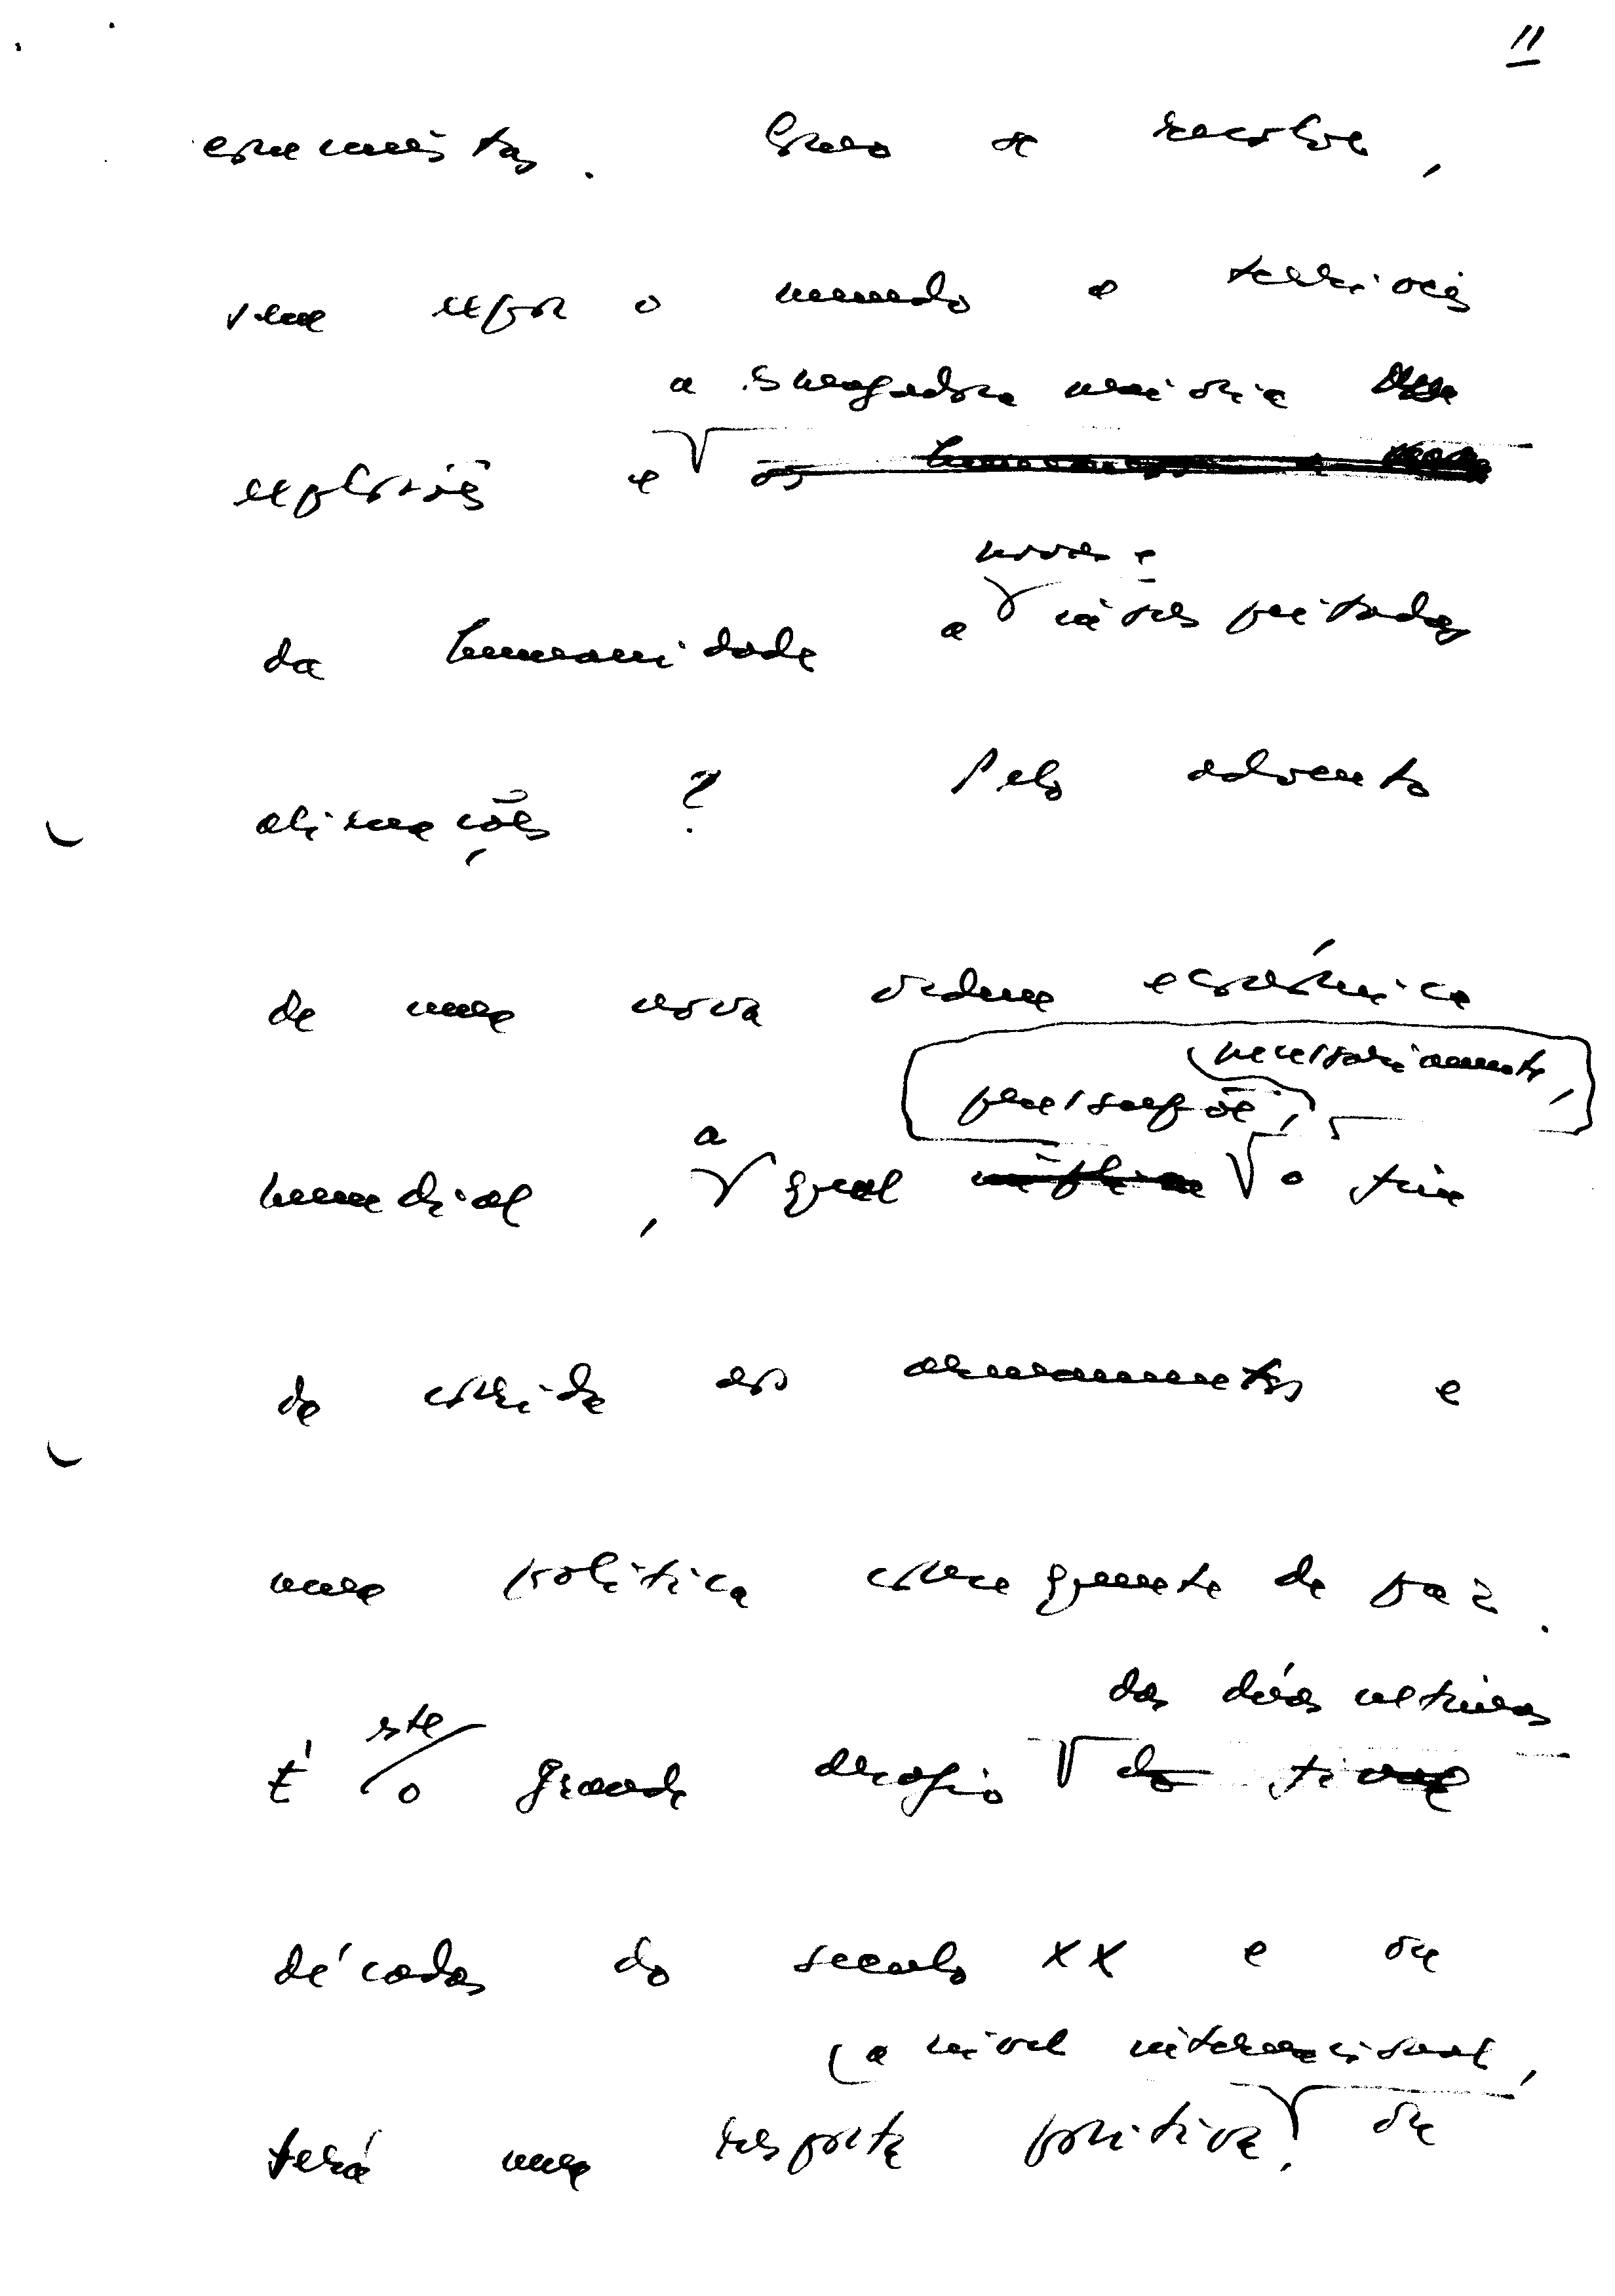 11
comunistas. Como se resolve,
sem expor o mundo a terríveis
a esmagadora maioria
explosões e os
da humanidade a
novas e
inesperadas
alienações? Pelo advento
de uma nova ordem económica
necessariamente,
pressupõe,
mundial, a qual o fim
da corrida aos armamentos e
uma política consequente de paz.
das duas ultimas
É este o grande desafio do final
décadas do seculo XX e ou
a nivel internacional,
terá uma resposta politica, ou